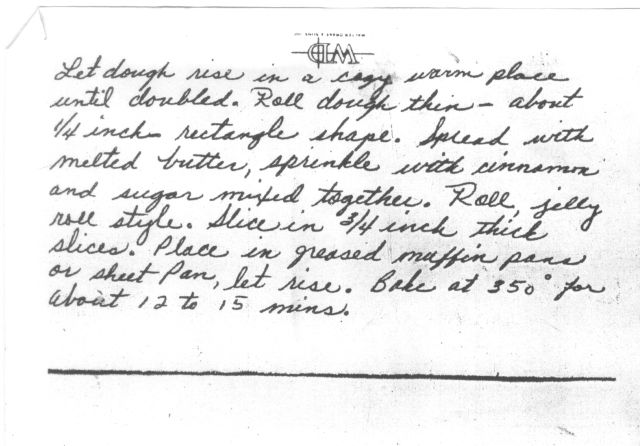 Let dough rise in a cozy warm place
until doubled. Roll dough thin - about
1/4 inch - rectangle shape. Spread with
melted butter, sprinkle with cinnamon
and sugar mixed together. Roll, jelly
roll style. Slice in 3/4 inch thick
slices. Place in greased muffin pans
or sheet Pan, let rise. Bake at 350° for
about 12 to 15 mins.